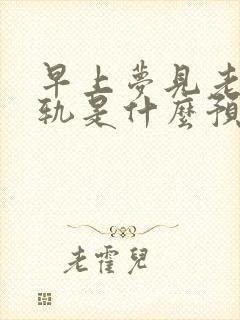 早上夢見老
軌是什麼預
老霍兒